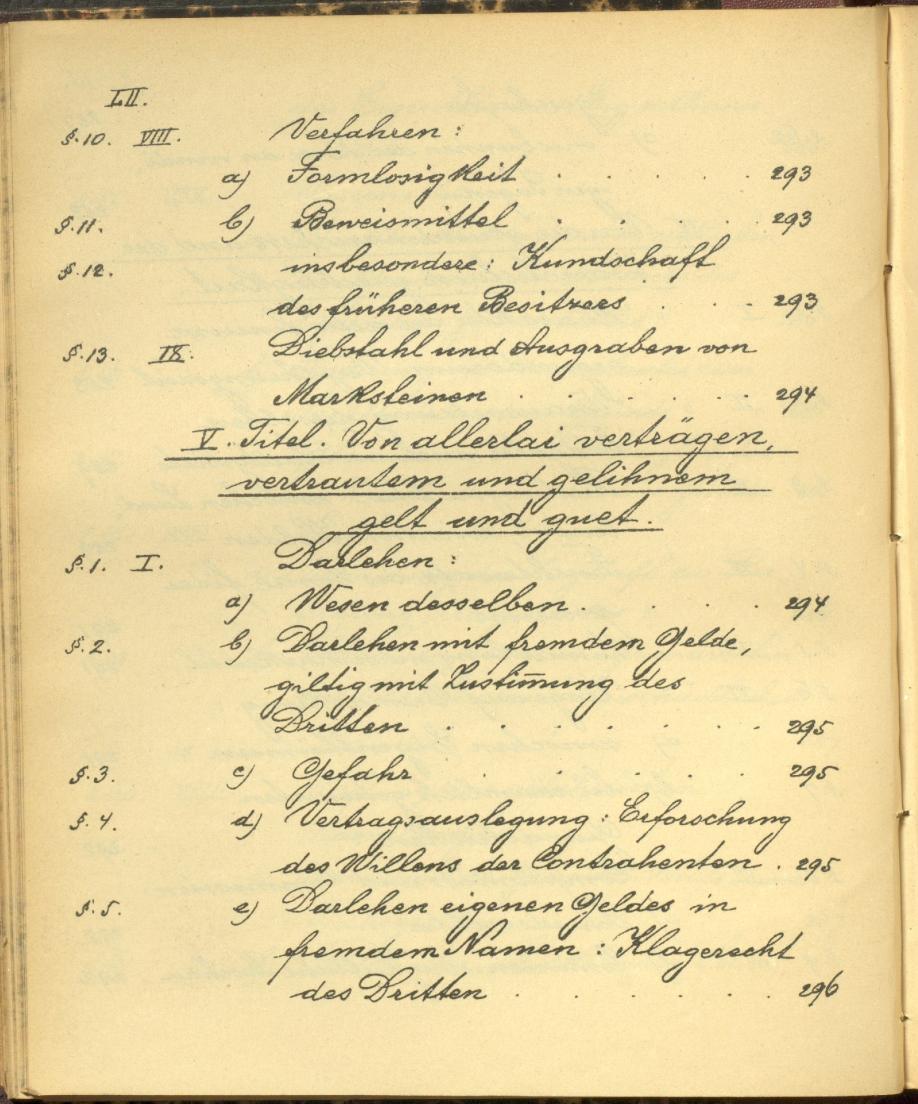 LII.
§.10. VIII. Verfahren:
a) Formlosigkeit . . . . . 293
§.11. b) Beweismittel . . . . 293
§.12. insbesondere: Kundschaft
des früheren Besitzers . . . 293
§.13. IX. Diebstahl und Ausgraben von
Marksteinen . . . . . . 294
V. Titel. Von allerlai verträgen,
vertrautem und gelihnem
gelt und guet.
§.1. I. Darlehen:
a) Wesen desselben . . . . 294
§.2. b) Darlehen mit fremdem Gelde,
giltig mit Zustim̅ung des
Dritten . . . . . . . 295
§.3. c) Gefahr . . . . . . 295
§.4. d) Vertragsauslegung: Erforschung
des Willens der Contrahenten . 295
§.5. e) Darlehen eigenen Geldes in
fremdem Namen: Klagerecht
des Dritten . . . . . . 296